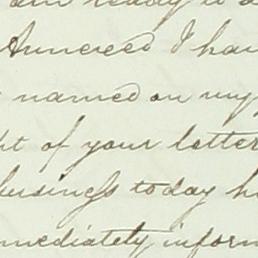 am ready to a
Annexed I hav
named on my
ht of your letter
business today h
mmediately inform